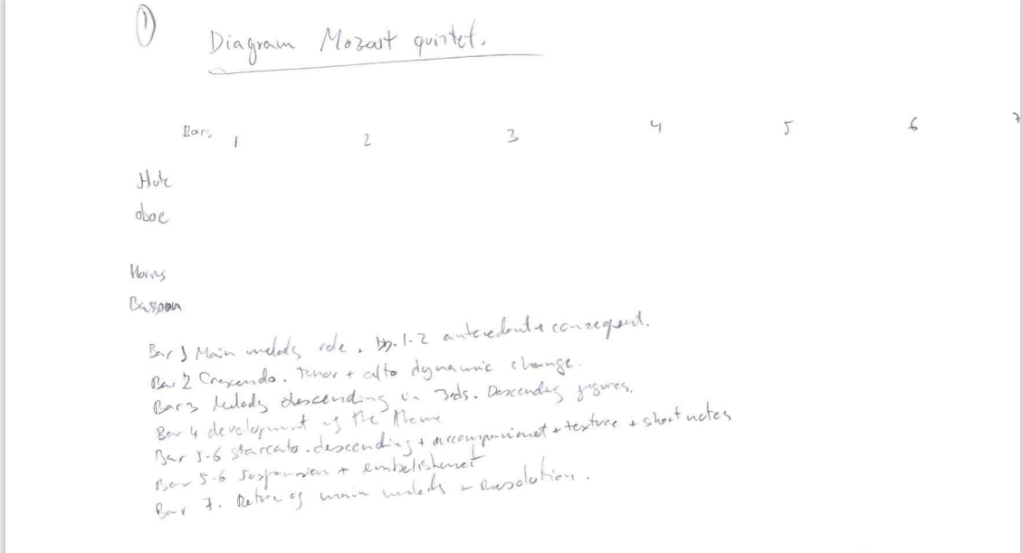 ①
Diagram Mozart quintet.
Bars 1 2 3 4 5 6 7
Flute
oboe
Horns
Bassoon
Bar 1 Main melody role. bb. 1-2 antecedent + consequent.
Bar 2 Crescendo. Tenor + alto dynamic change.
Bar 3 Melody descending in 3rds. Descending figures.
Bar 4 development of the theme
Bar 5-6 starcato. descending + accompaniment + texture + short notes
Bar 5-6 Suspension + embelishment
Bar 7. Return of main melody + Resolution.